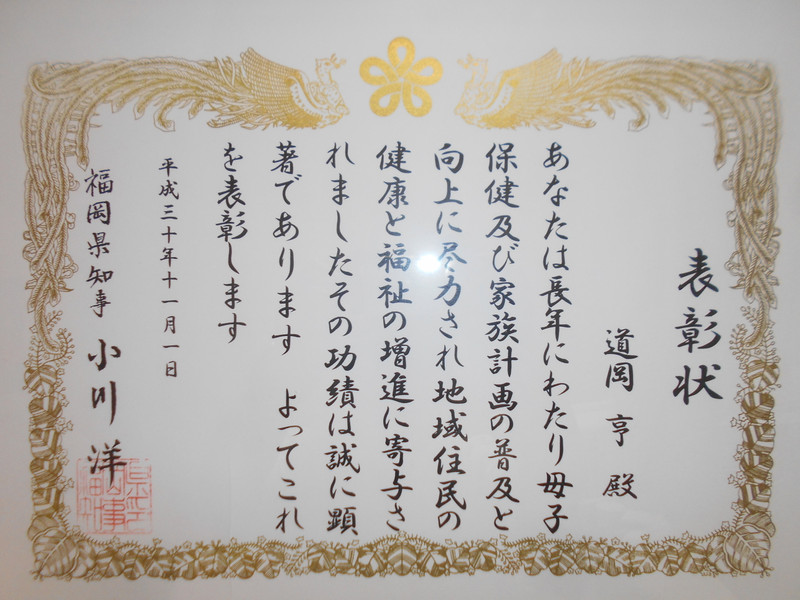 表彰状
道岡 亨 殿
あなたは長年にわたり母子
保健及び家族計画の普及と
向上に尽力され地域住民の
健康と福祉の増進に寄与さ
れましたその功績は誠に顕
著であります よってこれ
を表彰します
平成三十年十一月一日
福岡県知事 小川 洋